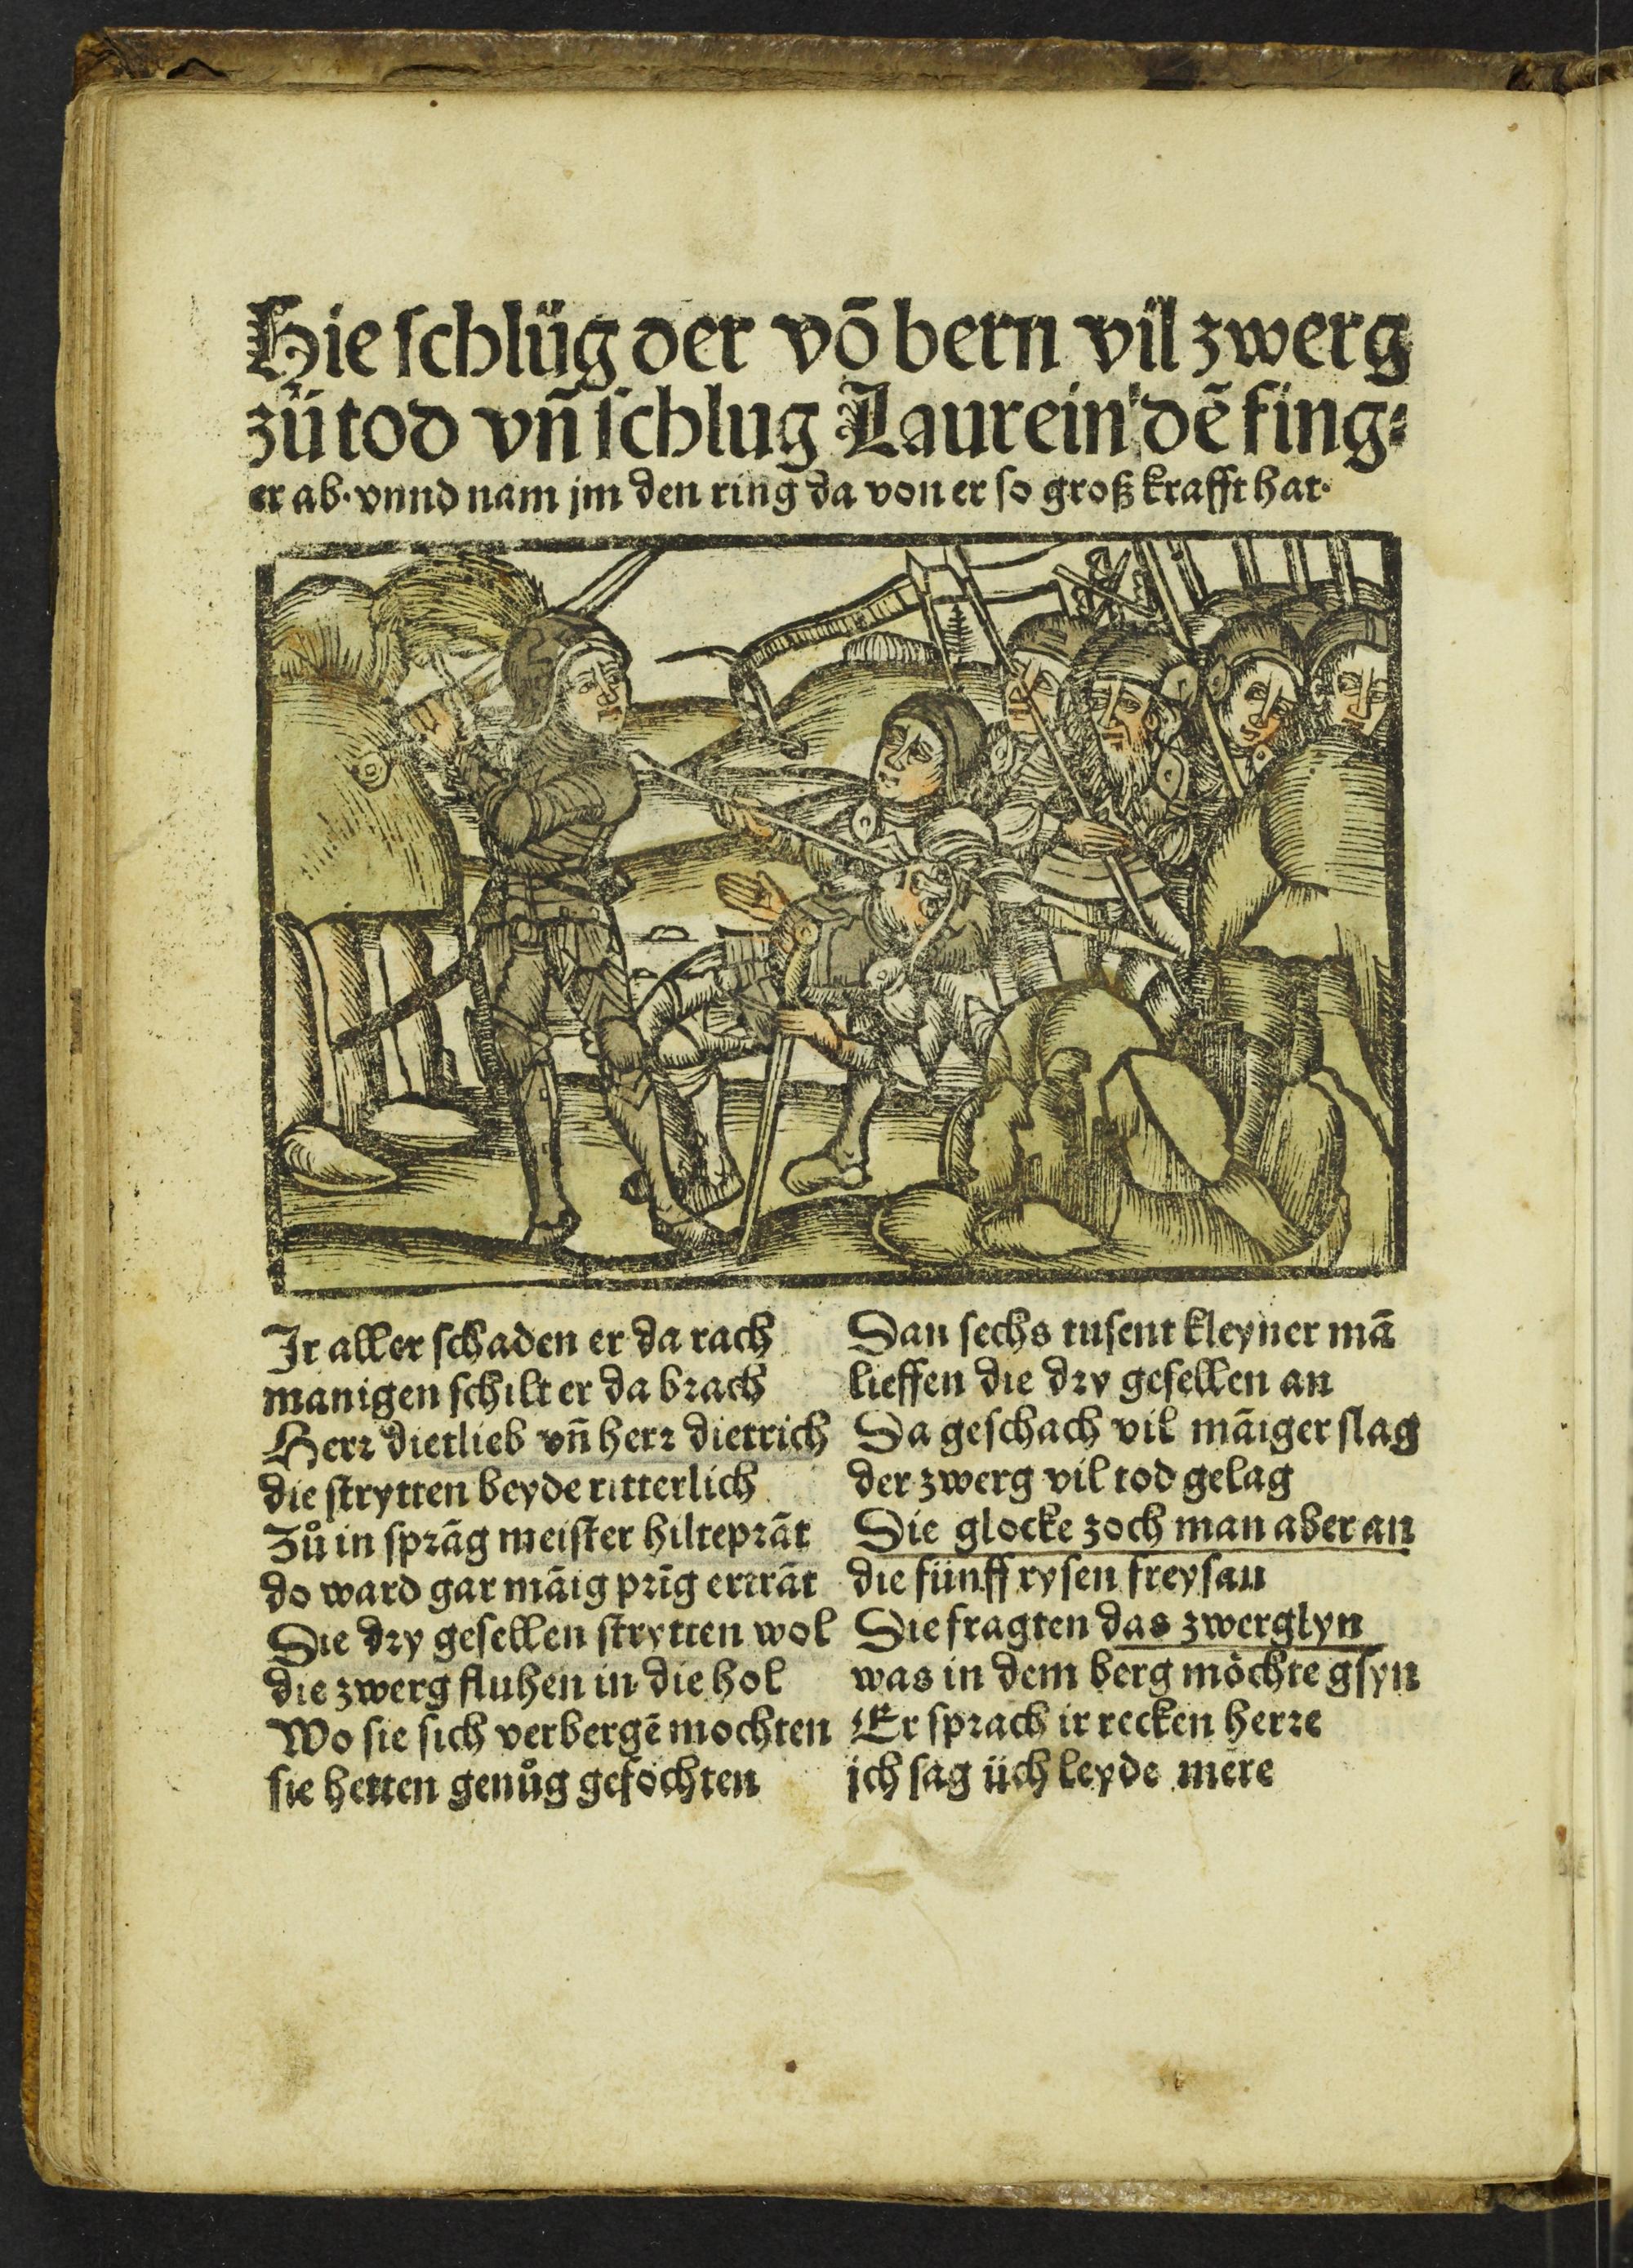 Hie schlüg der võ bern vil zwerg
zů tod vñ schlug Laurein dẽ fing⸗
er ab· vnnd nam jm den ring da von er so groß krafft hat·
Ir aller schaden er da rach
manigen schilt er da brach
Herr dietlieb vñ herr dietrich
die strytten beyde ritterlich
Zů in sprãg meister hilteprãt
do ward gar mãig prĩg ertrãt
Die dry gesellen strytten wol
die zwerg fluhen in die hol
Wo sie sich verbergẽ mochten
sie hetten genůg gefochten
Dan sechs tusent kleyner mã
lieffen die dry gesellen an
Da geschach vil mãiger slag
der zwerg vil tod gelag
Die glocke zoch man aber an
die fünff rysen freysan
Die fragten das zwerglyn
was in dem berg möchte gsyn
Er sprach ir recken herre
ich sag üch leyde mere